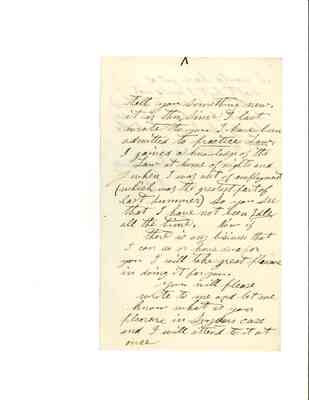 tell you something new.
it is this, Since I last
wrote to you I have been
admitted to practice Law.
I gained a knowledge of the
Law at home of nights and
when I was out of employment
(which was the greatest part of
last Summer) So you See
that I have not been Idle
all the time. Now if
there is any business that
I can do or have done for
you I will take great pleasure
in doing it for you.
You will please
write to me and let me
know what is your
pleasure in Snyders case
and I will attend to it at
once